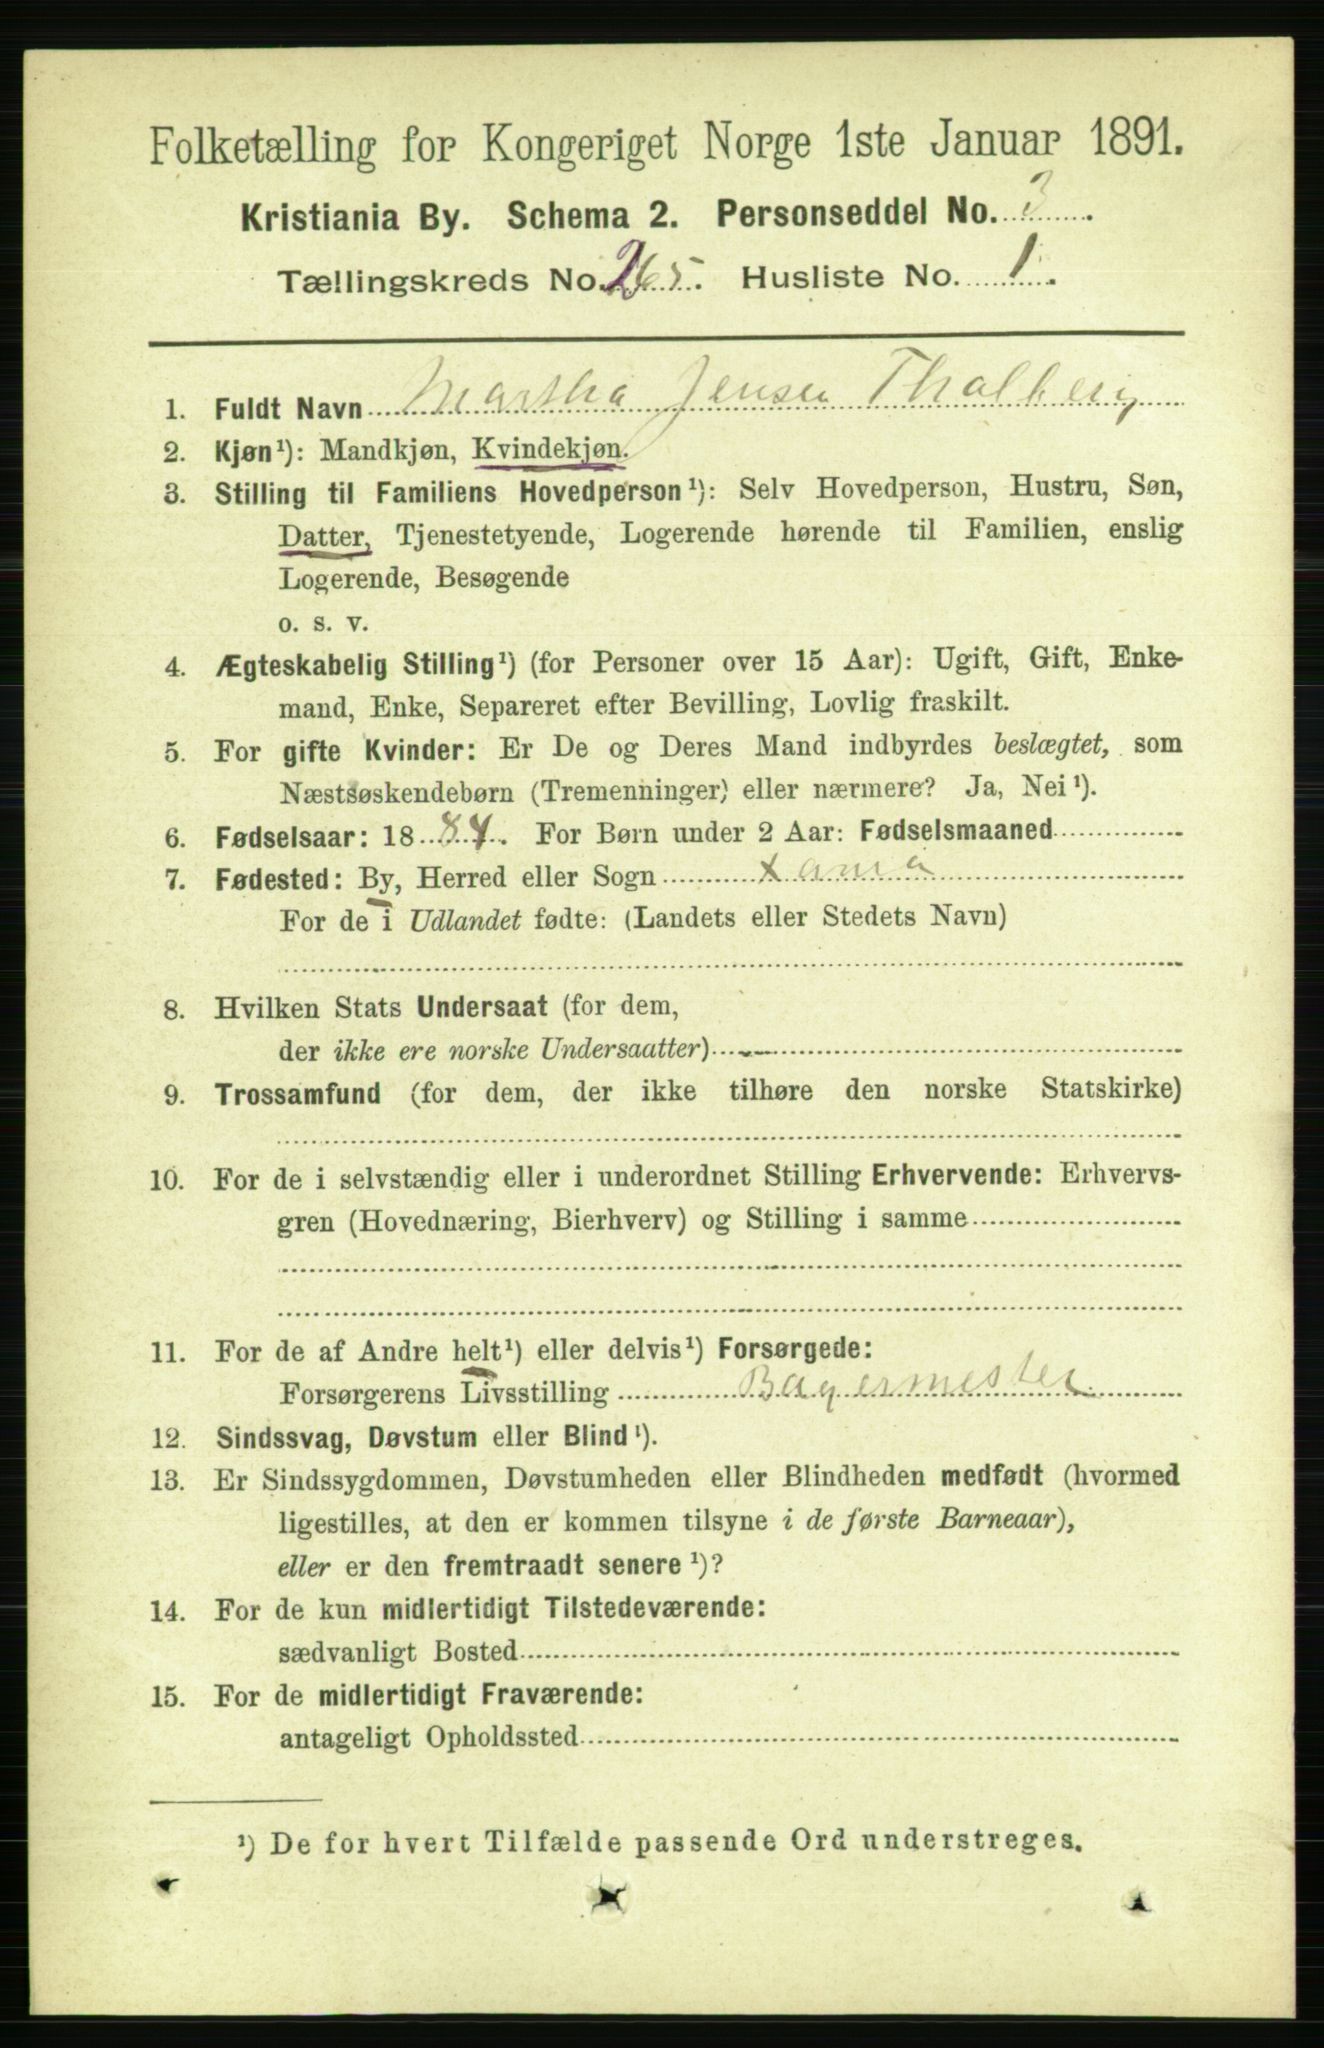 Folketælling for Kongeriget Norge 1ste Januar 1891.
Kristiania By. Schema 2. Personseddel No. 3.
Tællingskreds No. 265. Husliste No. 1.
1. Fuldt Navn Martha Jensen Thalberg
2. Kjøn¹): Mandkjøn, Kvindekjøn.
3. Stilling til Familiens Hovedperson¹): Selv Hovedperson, Hustru, Søn,
Datter, Tjenestetyende, Logerende hørende til Familien, enslig
Logerende, Besøgende
o. s. v.
4. Ægteskabelig Stilling¹) (for Personer over 15 Aar): Ugift, Gift, Enke-
mand, Enke, Separeret efter Bevilling, Lovlig fraskilt.
5. For gifte Kvinder: Er De og Deres Mand indbyrdes beslægtet, som
Næstsøskendebørn (Tremenninger) eller nærmere? Ja, Nei¹).
6. Fødselsaar: 1884. For Børn under 2 Aar: Fødselsmaaned
7. Fødested: By, Herred eller Sogn Xania
For de i Udlandet fødte: (Landets eller Stedets Navn)
8. Hvilken Stats Undersaat (for dem,
der ikke ere norske Undersaatter)
9. Trossamfund (for dem, der ikke tilhøre den norske Statskirke)
10. For de i selvstændig eller i underordnet Stilling Erhvervende: Erhvervs-
gren (Hovednæring, Bierhverv) og Stilling i samme
11. For de af Andre helt¹) eller delvis¹) Forsørgede:
Forsørgerens Livsstilling Bagermester
12. Sindssvag, Døvstum eller Blind¹).
13. Er Sindssygdommen, Døvstumheden eller Blindheden medfødt (hvormed
ligestilles, at den er kommen tilsyne i de første Barneaar),
eller er den fremtraadt senere¹)?
14. For de kun midlertidigt Tilstedeværende:
sædvanligt Bosted
15. For de midlertidigt Fraværende:
antageligt Opholdssted
¹) De for hvert Tilfælde passende Ord understreges.